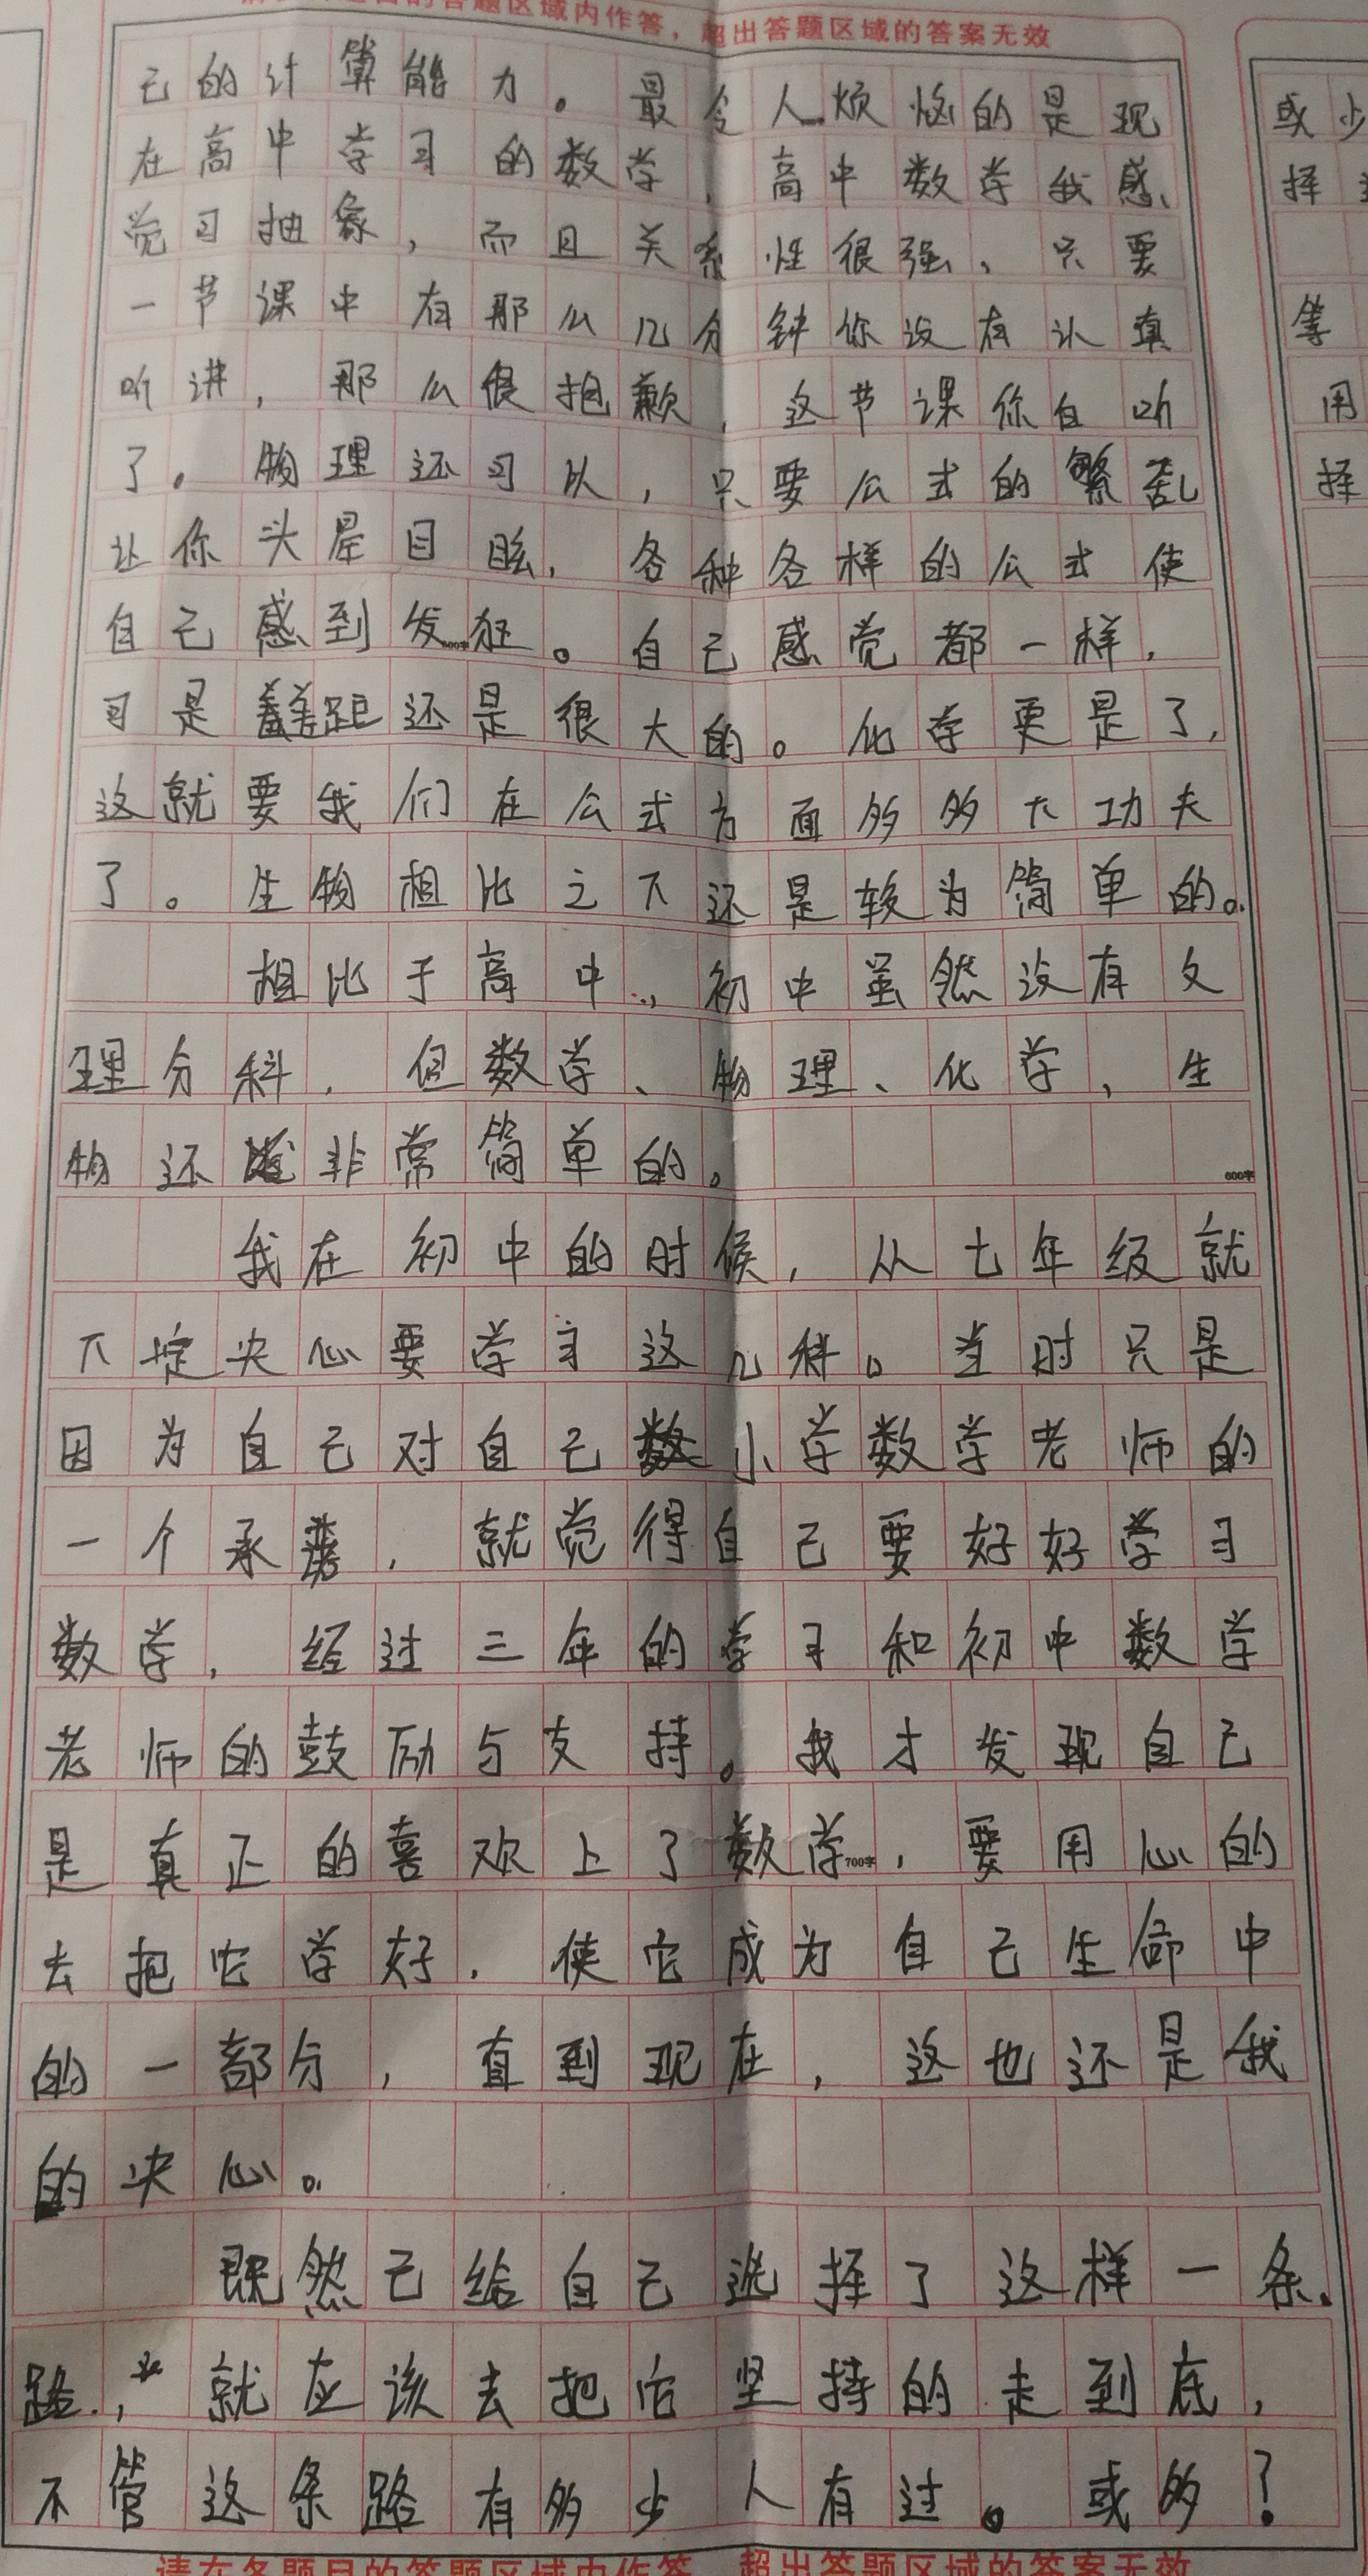 请在各题目的答题区域内作答，超出答题区域的答案无效
己的计算能力。最令人烦恼的是现
在高中学习的数学，高中数学我感
觉习抽象，而且关系性很强，只要
一节课中有那么几分钟你没有认真
听讲，那么很抱歉，这节课你白听
了。物理还习以，只要公式的繁乱
让你头晕目眩，各种各样的公式使
自己感到发狂。自己感觉都一样，
习是差距还是很大的。化学更是了，
这就要我们在公式方面多多下功夫
了。生物相比之下还是较为简单的。
相比于高中，初中虽然没有文
理分科，但数学、物理、化学，生
物还是非常简单的。
600字
我在初中的时候，从七年级就
下定决心要学习这几科。当时只是
因为自己对自己小学数学老师的
一个承诺，就觉得自己要好好学习
数学，经过三年的学习和初中数学
老师的鼓励与支持。我才发现自己
是真正的喜欢上了数学，要用心的
700字
去把它学好，使它成为自己生命中
的一部分，直到现在，这也还是我
的决心。
既然已给自己选择了这样一条
路，就应该去把它坚持的走到底，
不管这条路有多少人有过。或多！
请在各题目的答题区域内作答，超出答题区域的答案无效
或少
择
等
用
择